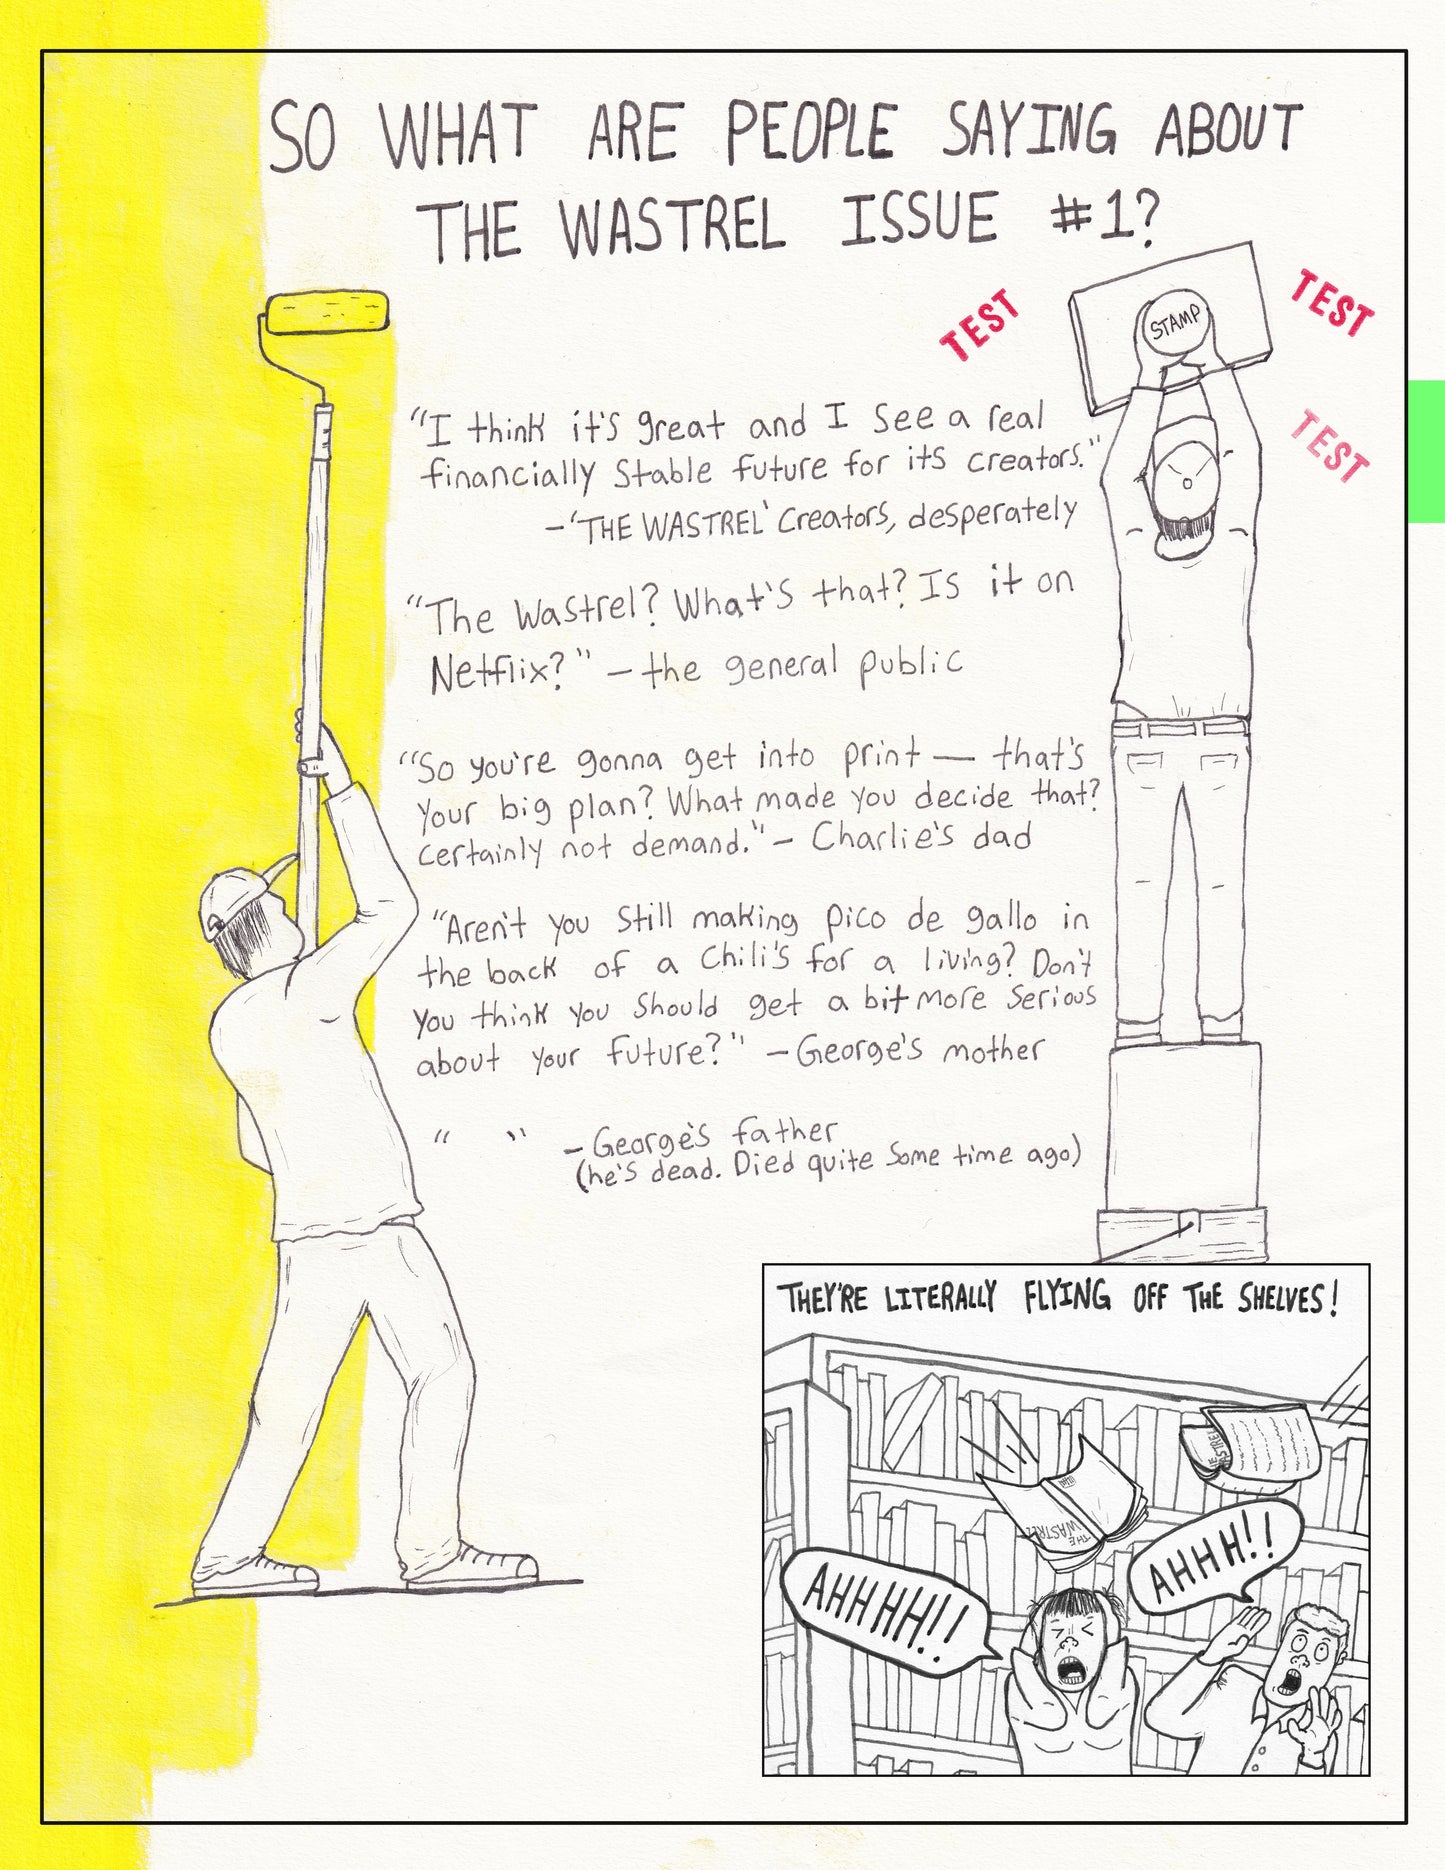 SO WHAT ARE PEOPLE SAYING ABOUT
THE WASTREL ISSUE #1?
TEST
STAMP
TEST
TEST
"I think it's great and I see a real
financially stable future for its creators."
-'THE WASTREL' Creators, desperately
"The Wastrel? What's that? Is it on
Netflix?" - the general public
"So you're gonna get into print — that's
your big plan? What made you decide that?
Certainly not demand." - Charlie's dad
"Aren't you still making pico de gallo in
the back of a Chili's for a living? Don't
you think you should get a bit more serious
about your future?" - George's mother
" " - George's father
(he's dead. Died quite some time ago)
THEY'RE LITERALLY FLYING OFF THE SHELVES!
THE
WASTREL
AHHHHH!!
AHHHH!!